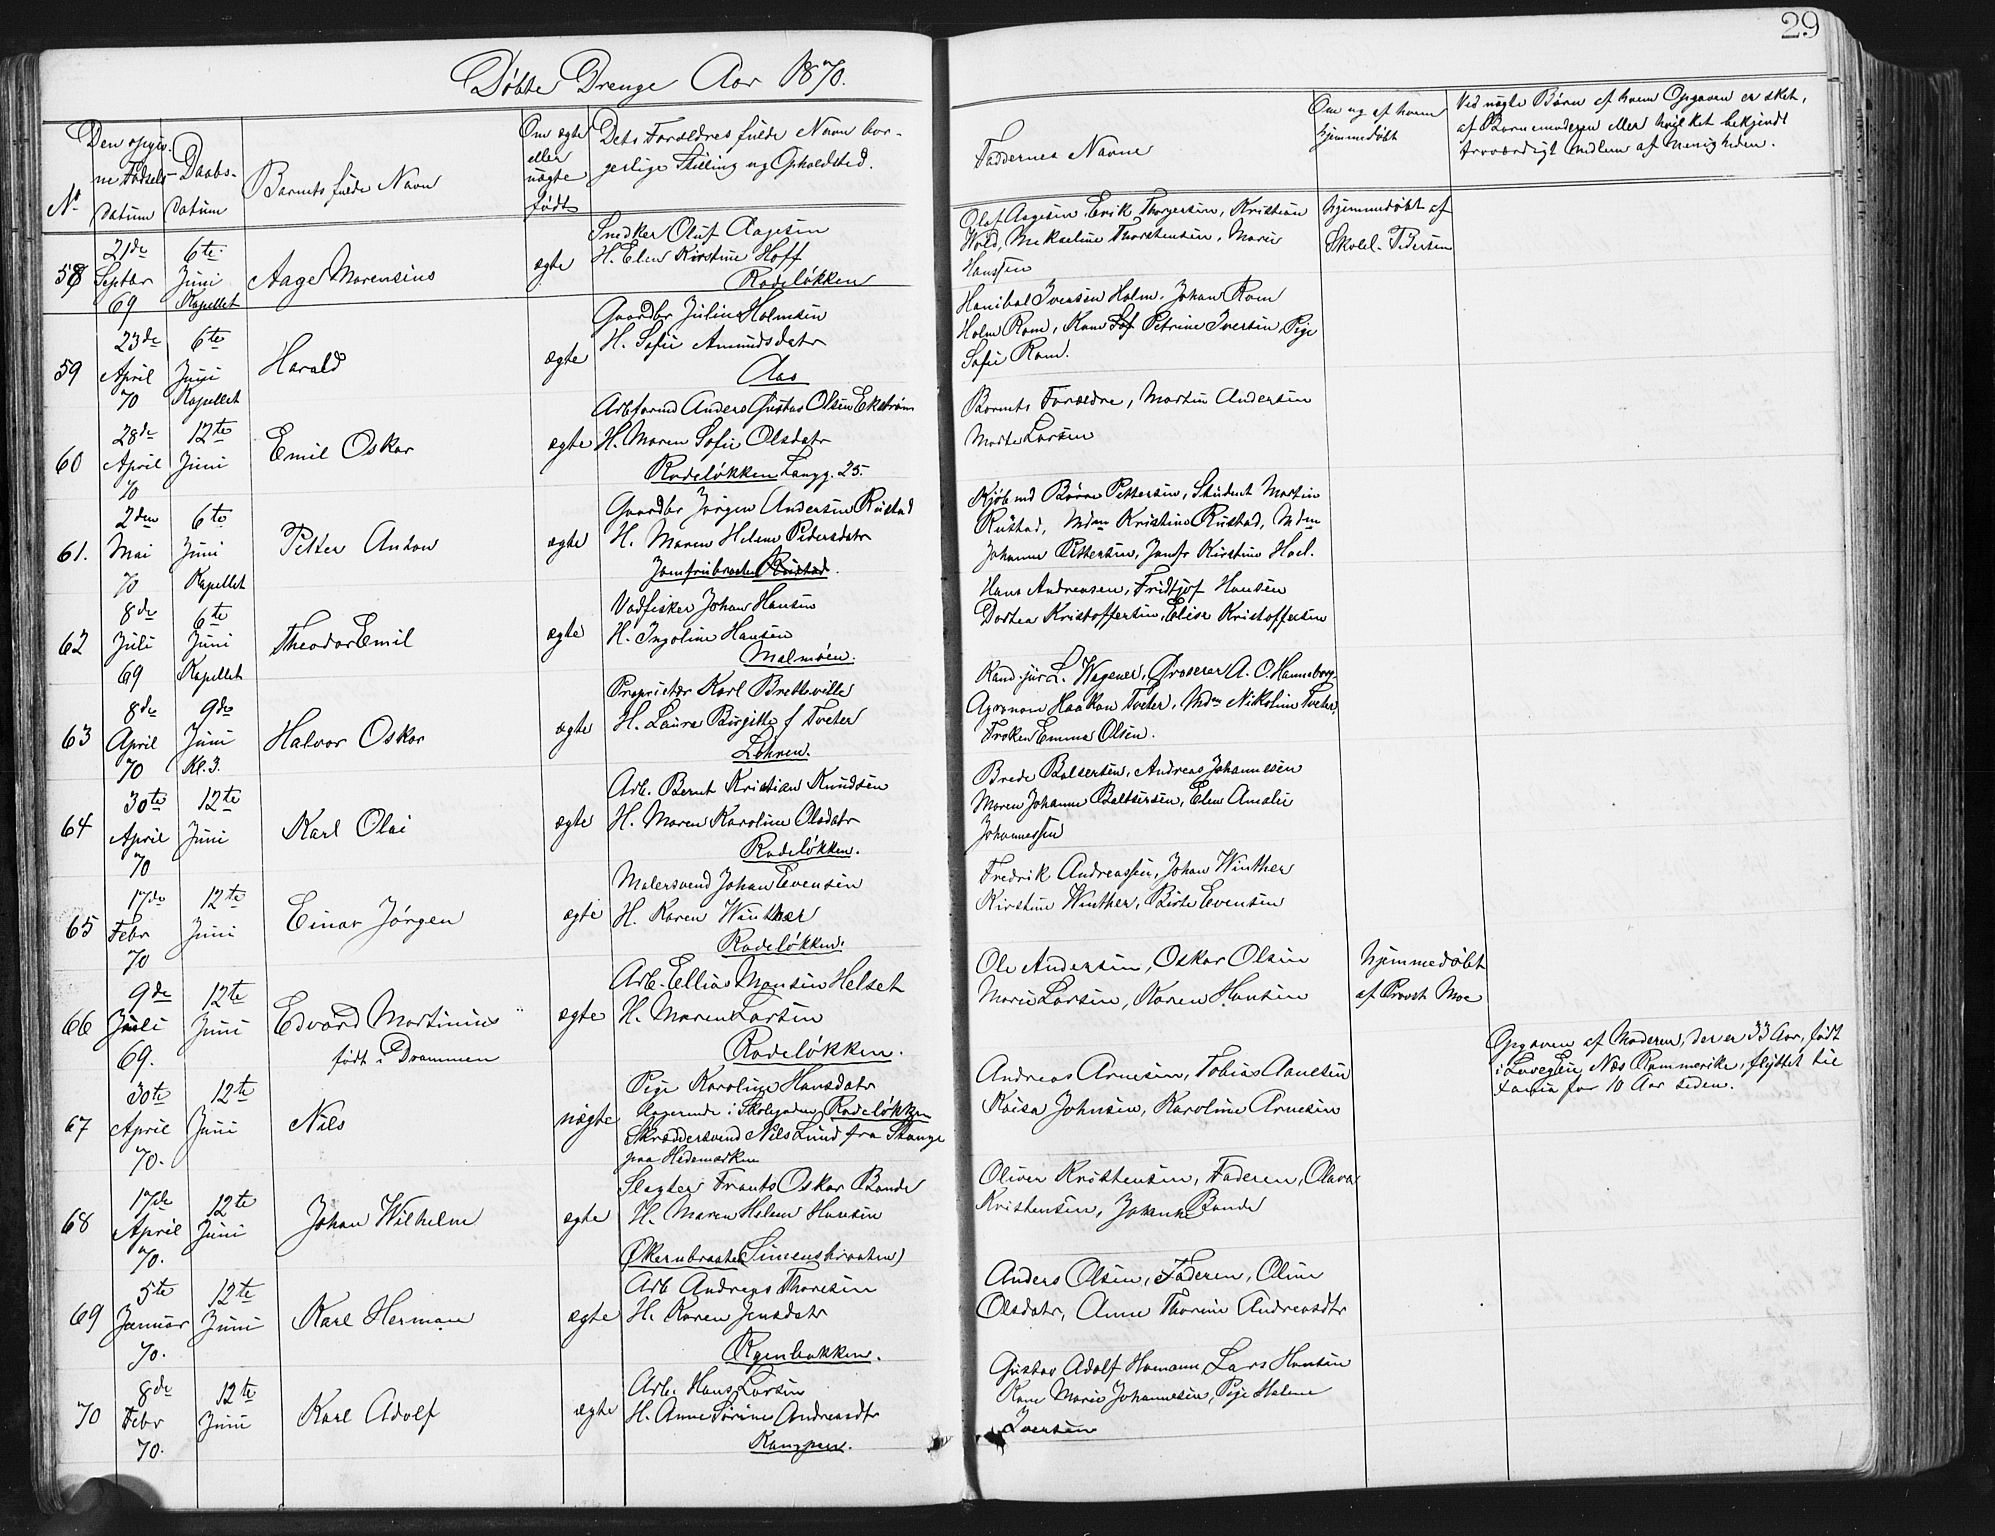 29
Døbte Drenge Aar 1870.
Nr
Den opgiv-
ne Fødsels-
Datum
Daabs-
Datum
Barnets fulde Navn
Om ægte
eller
uægte
født
Dets Forældres fulde Navn bor-
gerlige Stilling og Opholdsted.
Faddernes Navne
Om og af hvem
hjemmedøbt
Ved uægte Børn af hvem Opgaven er sket,
af Barnemoderen eller hvilket bekjendt
troværdigt Medlem af Menigheden.
58
21de
Septbr
69
6te
Juni
Kapellet
Aage Marensius
ægte
Snedker Oluf Aagesen
H. Elen Kirstine Hoff
Rodeløkken
Olaf Aagesen, Erik Thorgersen, Kristian
Hold, Mekseline Thorstensen, Marie
Hanssen
hjemmedøbt af
Skolel. Pedersen
59
23de
April
70
6te
Juni
Kapellet
Harald
ægte
Gaardbr Julius Holmsen
H. Sofie Amundsdatr
Aas
Hanibal Ivensen Holm, Johan Rom
Holm Rom, Kone Petrine Iversen, Pige
Sofie Rom.
60
28de
April
70
12te
Juni
Emil Oskar
ægte
Arbformd Anders Gustav Olsen Ekstrøm
H. Maren Sofie Olsdatr
Rodeløkken Langg. 25.
Barnets Forældre, Martin Andersen
Marte Larsen
61.
2den
Mai
70
6te
Juni
Kapellet
Petter Anton
ægte
Gaardbr Jørgen Andersen Rustad
H. Maren Helene Pedersdatr
Jomfrubraaten Rustad.
Kjøbmd Børre Pettersen, Student Martin
Rustad, Mdm Kristine Rustad, Mdm
Johanne Pettersen, Jomfr Kirstine Hoel.
62
8de
Juli
69
6te
Juni
Kapellet
Theodor Emil
ægte
Vadfisker Johan Hansen
H. Ingoline Hansen
Malmøen.
Hans Andreasen, Fridtjof Hansen
Dortea Kristoffersen, Elise Kristoffersen
63
8de
April
70
9de
Juni
Kl. 3.
Halvor Oskar
ægte
Proprietær Karl Bretteville
H. Laura Birgitte f Tveter
Lohren.
Kand. jur L. Wagener, Grosserer A. O. Hanneborg
Agronom Haakon Tveter, Mdm Nikoline Tveter,
Frøken Emma Olsen.
64
30te
April
70
12te
Juni
Karl Olai
ægte
Arb. Bernt Kristian Knudsen
H. Maren Karoline Olsdatr
Rodeløkken.
Brede Balsersen, Andreas Johannesen
Maren Johanne Baltsersen, Elen Amalie
Johannessen
65
17de
Febr
70
12te
Juni
Einar Jørgen
ægte
Malersvend Johan Evensen
H. Karen Winther
Rodeløkken.
Fredrik Andreassen, Johan Winther
Kirstine Winther, Birte Evensen
66
9de
Juli
69.
12te
Juni
Edvard Martinius
født i Drammen
ægte
Arb. Ellias Monsen Helset
H. Maren Larsen
Rodeløkken.
Ole Andersen, Oskar Olsen
Marie Larsen, Karen Hansen
hjemmedøbt
af Provst Moe
67
30te
April
70.
12te
Juni
Nils
uægte
Pige Karoline Hansdatr
logerende i Skolegaden Rodeløkken
Skræddersvend Nils Lund fra Stange
paa Hedemarken
Andreas Arnesen, Tobias Paulsen
Kaisa Johnsen, Karoline Arnesen
Opgaven af Moderen, der er 33 Aar, født
i Næs Romerike, flyttet til
for 10 Aar siden.
68
17de
April
70.
12te
Juni
Johan Wilhelm
ægte
Slagter Frants Oskar Bonde
H. Maren Helene Hansen
Økernbraaten (Simensbraaten)
Oliver Kristensen, Faderen, Olava
Kristensen, Johanne Bonde
69
5te
Januar
70.
12te
Juni
Karl Herman
ægte
Arb Andreas Thoresen
H. Karen Jensdatr
Ryenbakken.
Anders Olsen, Faderen, Oline
Olsdatr, Anne Thorine Andreasdtr
70
8de
Febr
70.
12te
Juni
Karl Adolf
ægte
Arb. Hans Larsen
H. Anne Sørine Andreasdtr
Kampen.
Gustav Adolf Homann Lars Hansen
Kone Marie Johannesen, Pige Helene
Iversen